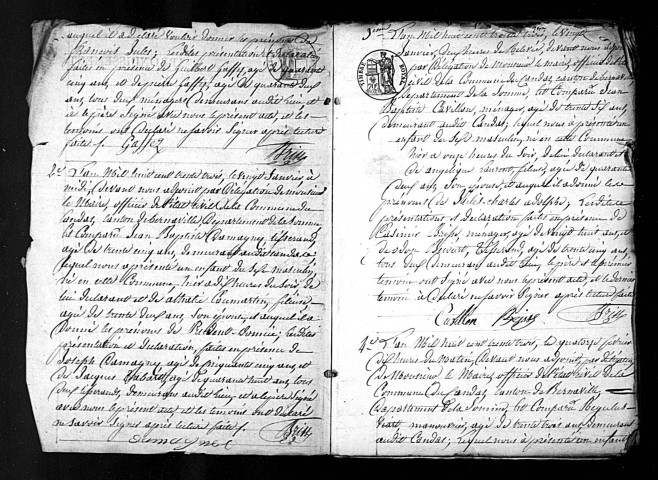 auquel il a déclaré vouloir donner les prénoms
de françois Jules; lesdites présentation et déclaration
faites en présence de Guilbert Gaffez, agé de quarante
cinq ans, et de pierre Gaffez, agé de quarante deux
ans, tous deux ménagers demeurans audit lieu, et
a le père signé avec nous le présent acte, et les
témoins ont déclaré ne savoir signer après lecture
faite /. Gaffez
2.e L'an Mil huit cent trente trois, le vingt Janvier à
midi, devant nous adjoint par délégation de monsieur
le Maire, officier de l'état civil de la Commune de
Candas, Canton de Bernaville, Département de la Somme
est Comparu Jean Baptiste Damagnez, tisserand,
agé de trente cinq ans, demeurant audit candas
lequel nous a présenté un enfant du sexe masculin,
né en cette Commune, hier à dix heures du soir, de
lui déclarant et de
agée de trente deux ans, son épouse, et auquel il a
donné les prénoms de lesdites
présentation et déclaration, faites en présence de
Joseph Damagnez agé de cinquante cinq ans, et
de Jacques agé de quarante huit ans, tous
deux tisserands, demeurans audit lieu, et a le père signé
avec nous le présent acte et les témoins ont déclaré
ne savoir signer après lecture faite /.
3.e L'an Mil huit cent trente trois, le vingt
Janvier, deux heures de relevée, devant nous adjoint
par délégation de Monsieur le Maire, officier de l'état
Civil de la Commune de Candas, canton de bernaville
département de la Somme, est Comparu Jean
Baptiste Catillon, ménager, agé de trente six ans,
demeurant audit Candas, lequel nous a présenté un
enfant du sexe masculin, né en cette Commune
hier à onze heures du soir, de lui déclarant et
de angélique fileuse, agée de quarante
deux ans, son épouse, et auquel il a donné les
prénoms de charles adolphe; lesdites
présentation et déclaration faites en présence de
Casimir ménager, agé de vingt huit ans, et
tisserand, agé de trente cinq ans,
tous deux demeurans audit lieu, le père et le premier
témoin ont signé avec nous le présent acte, et le dernier
témoin a déclaré ne savoir signer après lecture faite
Catillon
4.e L'an Mil huit cent trente trois, le quatorze février
dix heures du matin, devant nous adjoint, par délégation
de Monsieur le Maire, officier de l'état Civil de la
Commune de Candas, Canton de Bernaville
département de la Somme, est Comparu
manouvrier, agé de trente trois ans demeurant
audit Candas; lequel nous a présenté un enfant